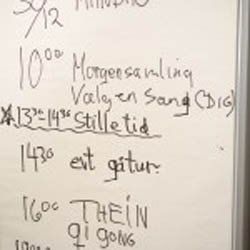 30/12
10⁰⁰ Morgensamling
Vælg en Sang (DIG)
13³⁰-14³⁰ Stilletid
14³⁰ evt gåtur
16⁰⁰ THEIN
qi gong